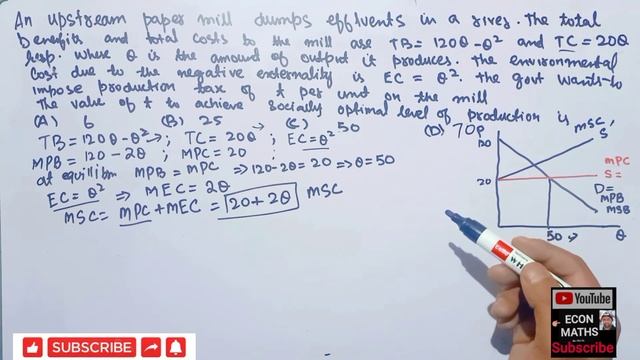 An upstream paper mill dumps efflvents in a river. The total
benefits and total costs to the mill are TB = 120Q - Q² and TC = 20Q
resp. where Q is the amount of output it produces. The environmental
cost due to the negative externality is EC = Q². the govt wants to
impose production tax of t per unit on the mill
The value of t to achieve socially optimal level of production is
(A) 6 (B) 25 (C) 50 (D) 70
TB = 120Q - Q² ; TC = 20Q ; EC = Q²
MPB = 120 - 2Q ; MPC = 20 ;
at equilibm MPB = MPC ⇒ 120 - 2Q = 20 ⇒ Q = 50
EC = Q² ⇒ MEC = 2Q
MSC = MPC + MEC = 20 + 2Q MSC
P
MSC,
S
120
MPC
S =
20
D =
MPB
MSB
50
Q
YouTube
ECON
MATHS
Subscribe
SUBSCRIBE